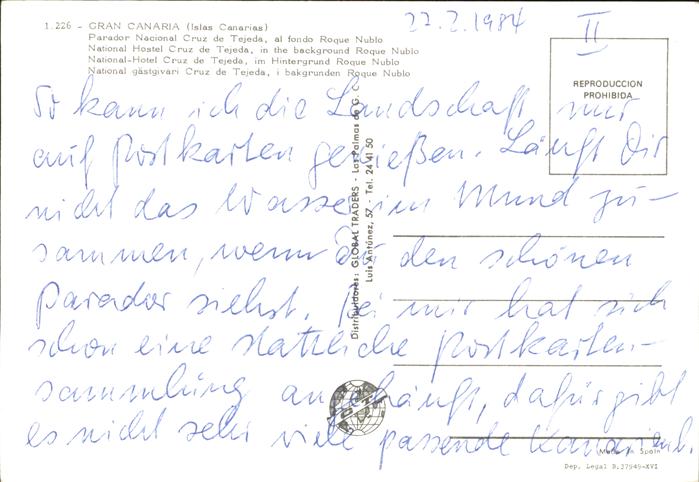 1.226 - GRAN CANARIA (Islas Canarias)
Parador Nacional Cruz de Tejeda, al fondo Roque Nublo
National Hostel Cruz de Tejeda, in the background Roque Nublo
National-Hotel Cruz de Tejeda, im Hintergrund Roque Nublo
National gästgivåri Cruz de Tejeda, i bakgrunden Roque Nublo
22.2.1984
II
REPRODUCCION
PROHIBIDA
So kann ich die Landschaft nur
auf Postkarten genießen. Läuft Dir
nicht das Wasser im Mund zu-
sammen, wenn Du den schönen
Parador siehst. Bei mir hat sich
schon eine stattliche Postkarten-
sammlung angehäuft, dafür gibt
es nicht sehr viele passende Kanarienb.
Distribuidores: GLOBAL TRADERS - Las Palmas de G. C.
Luis Antúnez, 57 - Tel. 24 41 50
Made in Spain
Dep. Legal B.37949-XVI